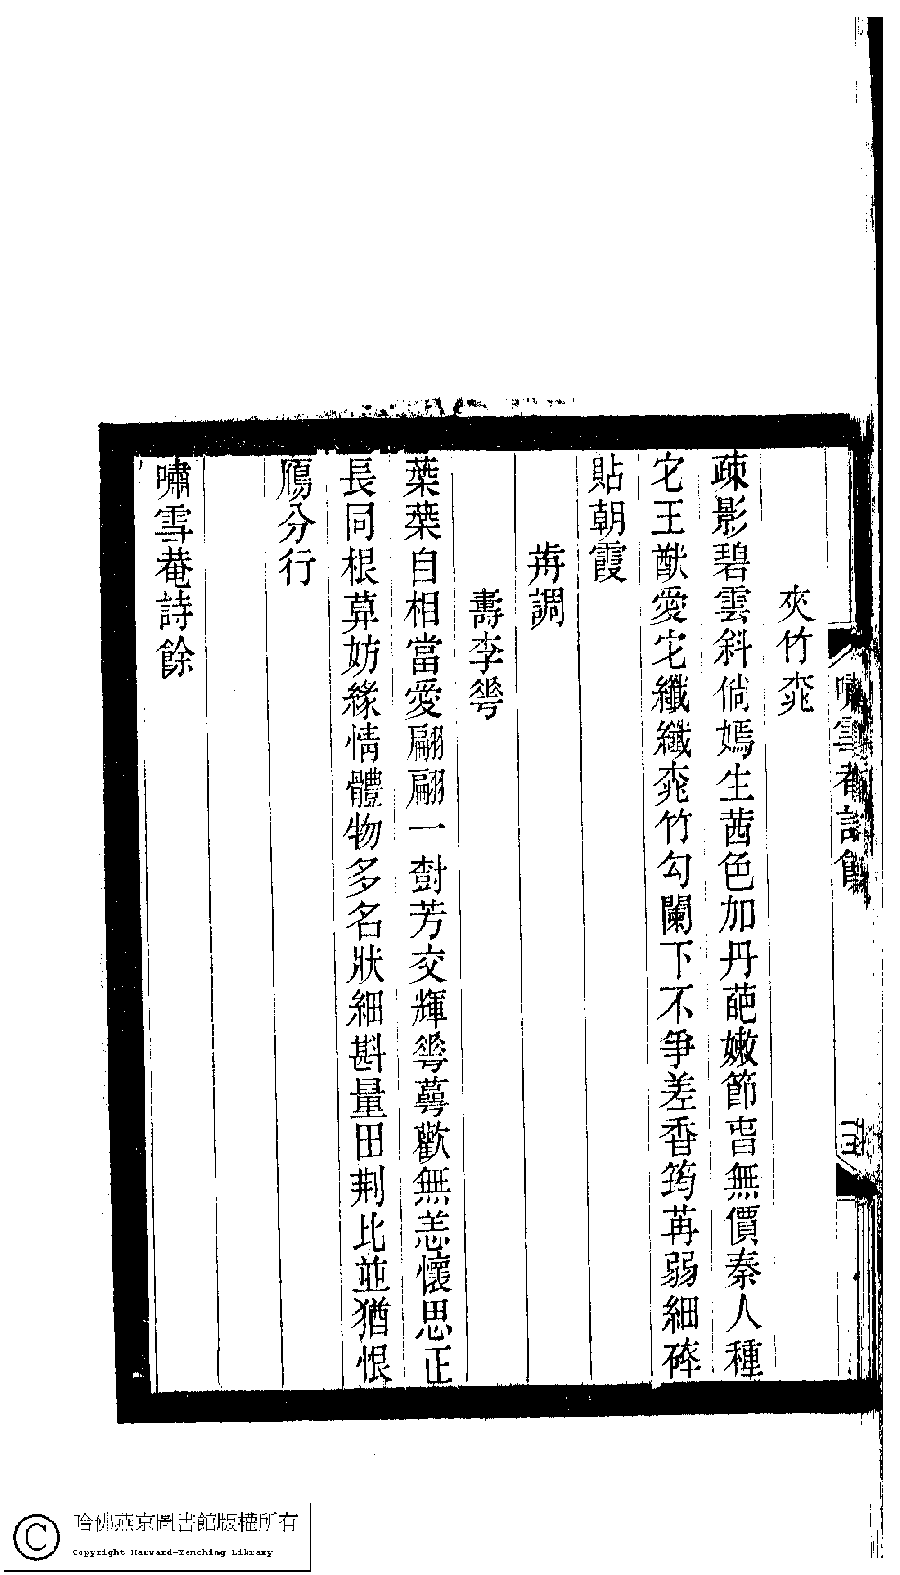 嘯雪菴詩餘
夾竹𡘊
疎影碧雲斜倘嫣生茜色加丹葩嫩節岧無價秦人種
它王猷愛宅纖纖𡘊竹勾闌下不爭差香筠苒弱細𥓓
貼朝霞
前調
壽李蕐
葉葉自相當愛翩翩一對芳交輝蕐萼歡無恙懷思正
長同根莫妨緣情體物多名狀細斟量田荆比並猶恨
鴈分行
嘯雪菴詩餘
哈佛燕京圖書館版權所有
Copyright Harvard-Yenching Library